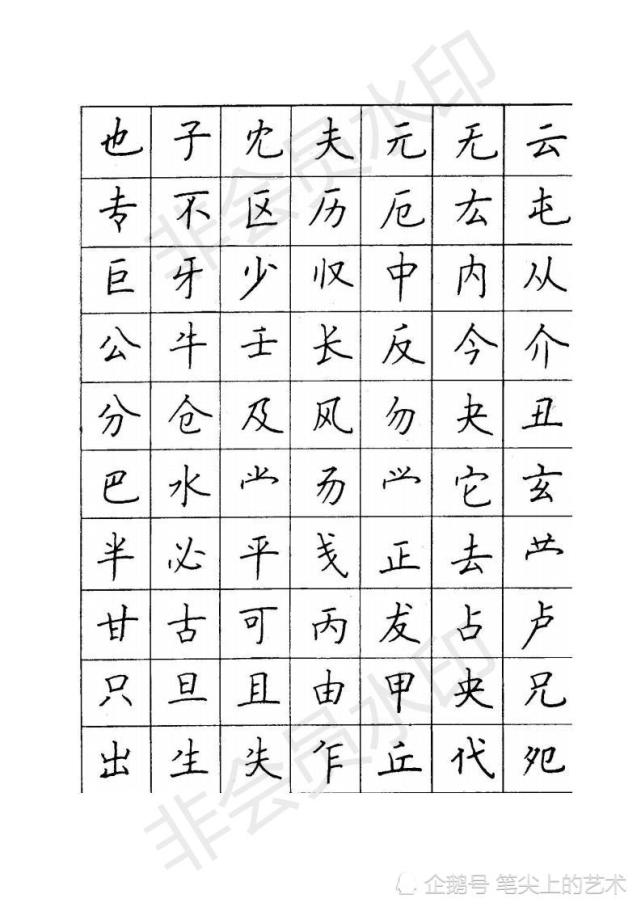 非会员水印
也 子 冘 夫 元 无 云
专 不 区 历 厄 厷 屯
巨 牙 少 収 中 内 从
公 牛 壬 长 反 今 介
分 仓 及 风 勿 夬 丑
巴 水 龸 它 玄
半 必 平 戋 正 去
甘 古 可 丙 发 占 卢
只 旦 且 由 甲 央 兄
出 生 失 乍 丘 代 夗
非会员水印
企鹅号 笔尖上的艺术